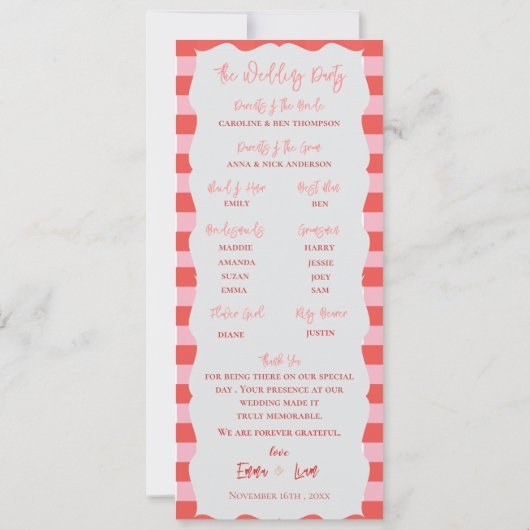 The Wedding Party
Parents of the Bride
CAROLINE & BEN THOMPSON
Parents of the Groom
ANNA & NICK ANDERSON
Maid of Honor Best Man
EMILY BEN
Bridesmaids Groomsmen
MADDIE HARRY
AMANDA JESSIE
SUZAN JOEY
EMMA SAM
Flower Girl Ring Bearer
DIANE JUSTIN
Thank You
FOR BEING THERE ON OUR SPECIAL
DAY . YOUR PRESENCE AT OUR
WEDDING MADE IT
TRULY MEMORABLE.
WE ARE FOREVER GRATEFUL.
love
Emma & Liam
NOVEMBER 16TH , 20XX